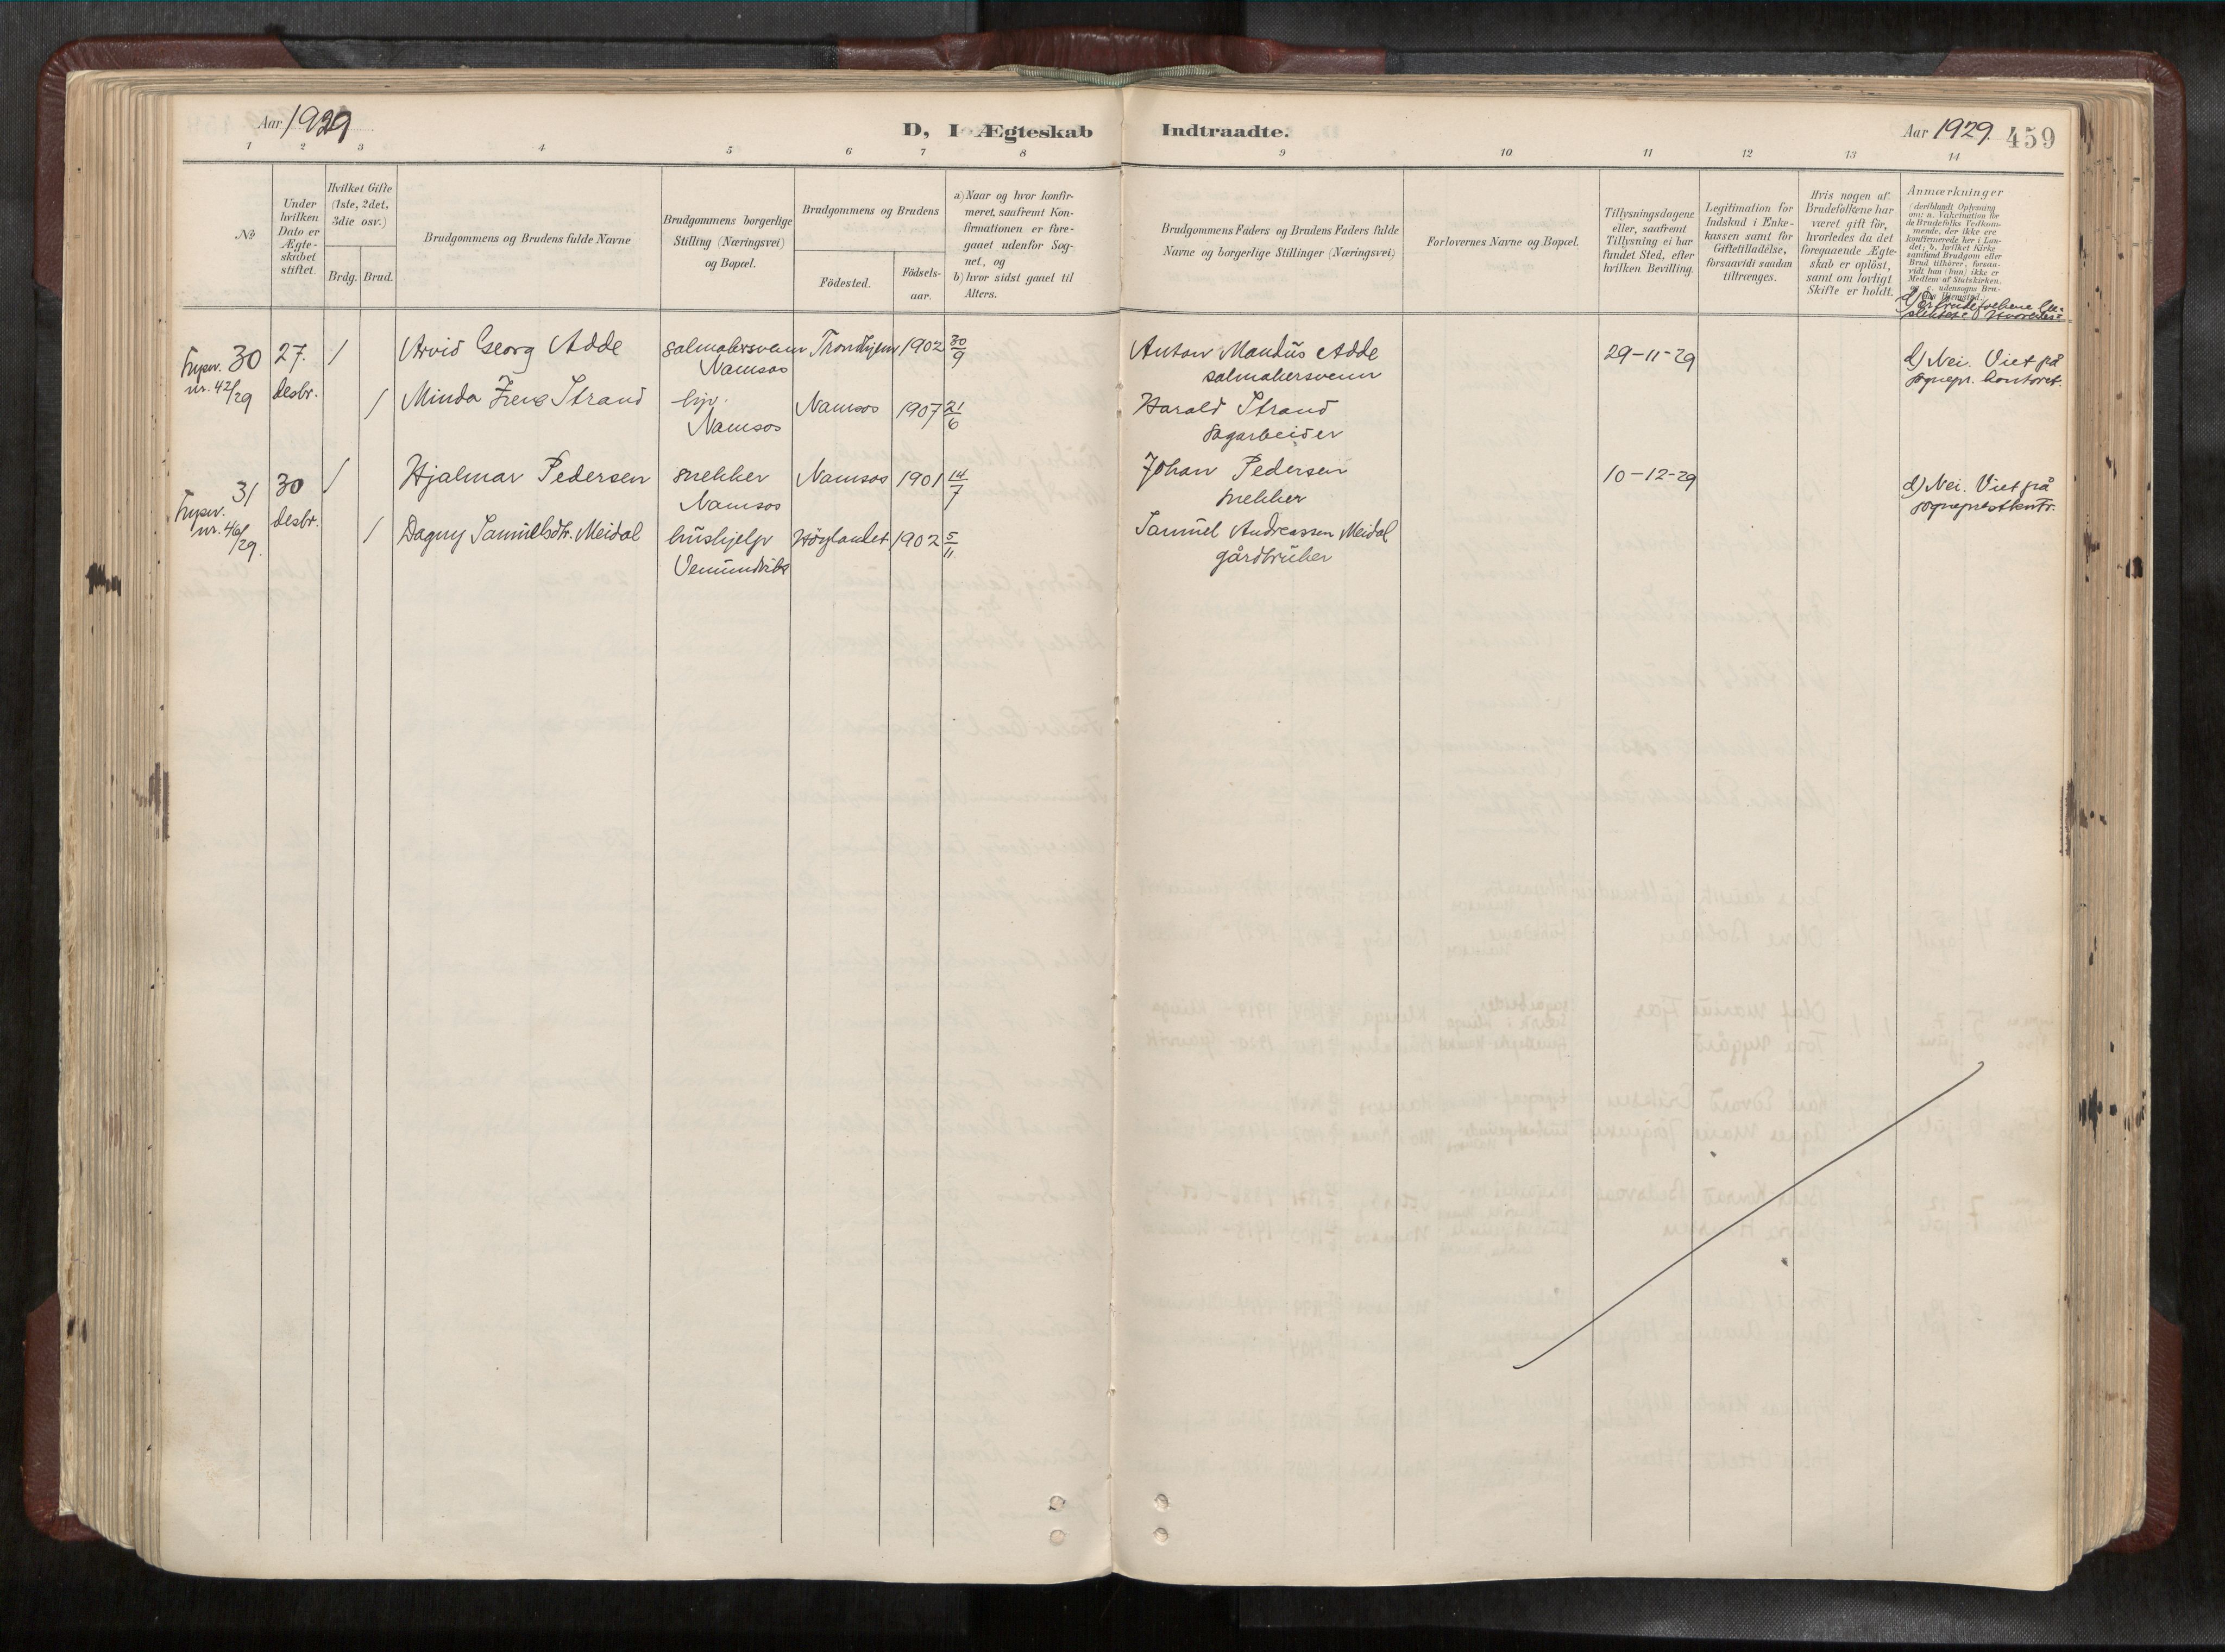 Aar 1929
D, I Ægteskab Indtraadte.
Aar 1929. 459
1 2 3 4 5 6 7 8 9 10 11 12 13 14
№
Under hvilken Dato er Ægteskabet stiftet.
Hvilket Gifte (1ste, 2det, 3die osv.)
Brdg. Brud.
Brudgommens og Brudens fulde Navne
Brudgommens borgerlige Stilling (Næringsvei) og Bopæl.
Brudgommens og Brudens
Födested.
Födsels-aar.
a) Naar og hvor konfir-
meret, saafremt Kon-
firmationen er fore-
gaaet udenfor Sog-
net, og
b) hvor sidst gaaet til
Alters.
Brudgommens Faders og Brudens Faders fulde
Navne og borgerlige Stillinger (Næringsvei)
Forlovernes Navne og Bopæl.
Tillysningsdagene
eller, saafremt
Tillysning ei har
fundet Sted, efter
hvilken Bevilling.
Legitimation for
Indskud i Enke-
kassen samt for
Giftetilladelse,
forsaavidt saadan
tiltrænges.
Hvis nogen af
Brudefolkene har
været gift för,
hvorledes da det
foregaaende Ægte-
skab er oplöst,
samt om lovligt
Skifte er holdt.
Anmærkninger
(deriblandt Oplysning
om: a. Vakcination for
de Brudefolks Vedkom-
mende, der ikke ere
konfirmerede her i Lan-
det; b. hvilket Kirke-
samfund Brudgom eller
Brud tilhörer, forsaa-
vidt han (hun) ikke er
Medlem af Statskirken.
og c. udensogns Bru-
des Hjemsted.)
d) Er brudefolkene be-
slektet? Hvorledes?
30 27. 1 Arvid Georg Adde salmakersvenn Trondhjem 1902 30/9 Anton Mandüs Adde 29-11-29 d) Nei. Viet på
nr. 42/29 desbr. Namsos salmakersvenn sognepr. kontoret.
1 Minda Strand Namsos 1907 21/6 Harald Strand
Namsos sagarbeider
31 30 1 Hjalmar Pedersen snekker Namsos 1901 14/7 Johan Pedersen 10-12-29 d) Nei. Viet på
desbr. Namsos snekker sogneprestkontr.
nr. 46/29. 1 Dagny Samüelsdtr. Meidal hüshjelp Höylandet 1902 5/11 Samüel Andreassen Meidal
Vemündvik gårdbrüker